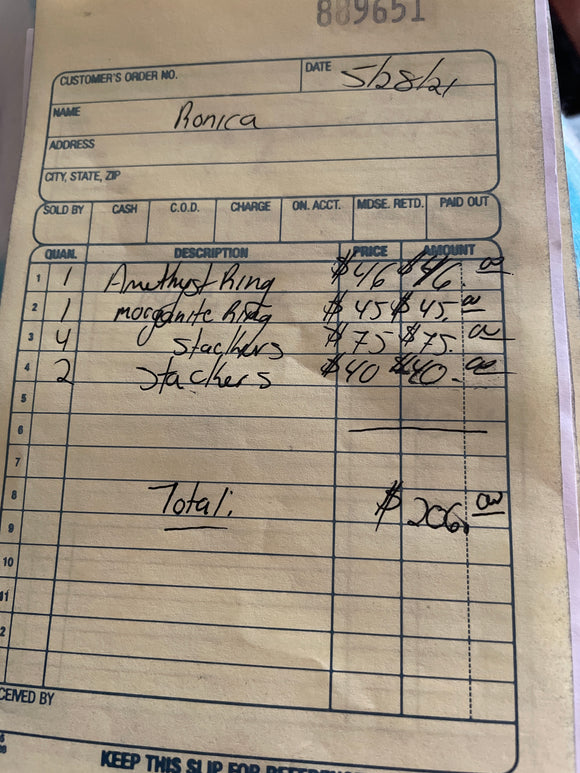 889651
CUSTOMER'S ORDER NO. DATE 5/28/21
NAME Ronica
ADDRESS
CITY, STATE, ZIP
SOLD BY CASH C.O.D. CHARGE ON. ACCT. MDSE. RETD. PAID OUT
QUAN. DESCRIPTION PRICE AMOUNT
1 1 Amethyst Ring $46 $46.00
2 1 morganite Ring $45 $45.00
3 4 stackers $75 $75.00
4 2 stackers $40 $40.00
5
6
7
8 Total: $206.00
9
10
11
2
CEIVED BY
KEEP THIS SLIP FOR REFERENC